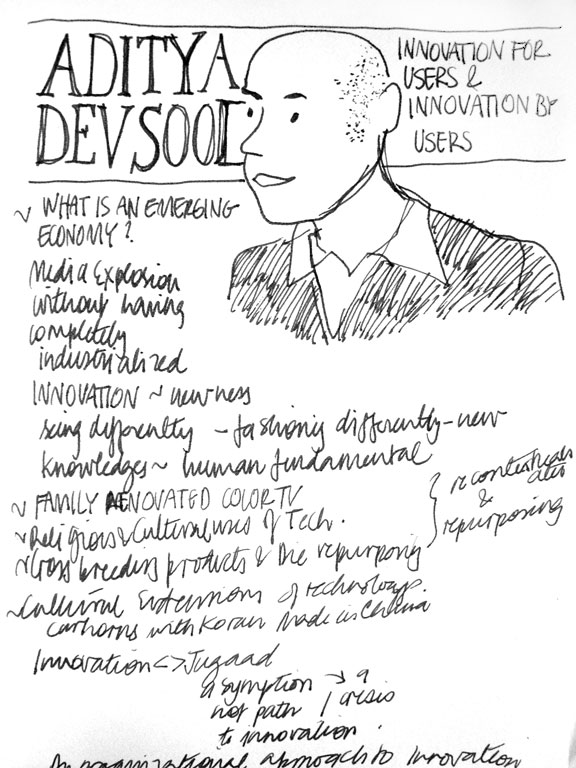 ADITYA
DEV SOOD
INNOVATION FOR
USERS &
INNOVATION BY
USERS
~ WHAT IS AN EMERGING
ECONOMY?
Media Explosion
without having
completely
industrialized
INNOVATION ~ newness
seeing differently ~ fashioning differently - new
knowledges ~ human fundamental
~ FAMILY RENOVATED COLOR TV
~ Religious & Cultural uses of Tech.
~ Cross breeding products & Die repurposing
recontextualis
&
repurposing
~ Cultural Extensions of technology.
carhorns with Koran Made in China
Innovation <> Jugaad
a symption → a
not path / crisis
to innovation.
An organizational approach to Innovation